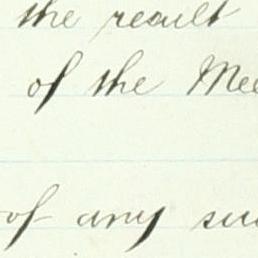 the result
of the Mee
of any su